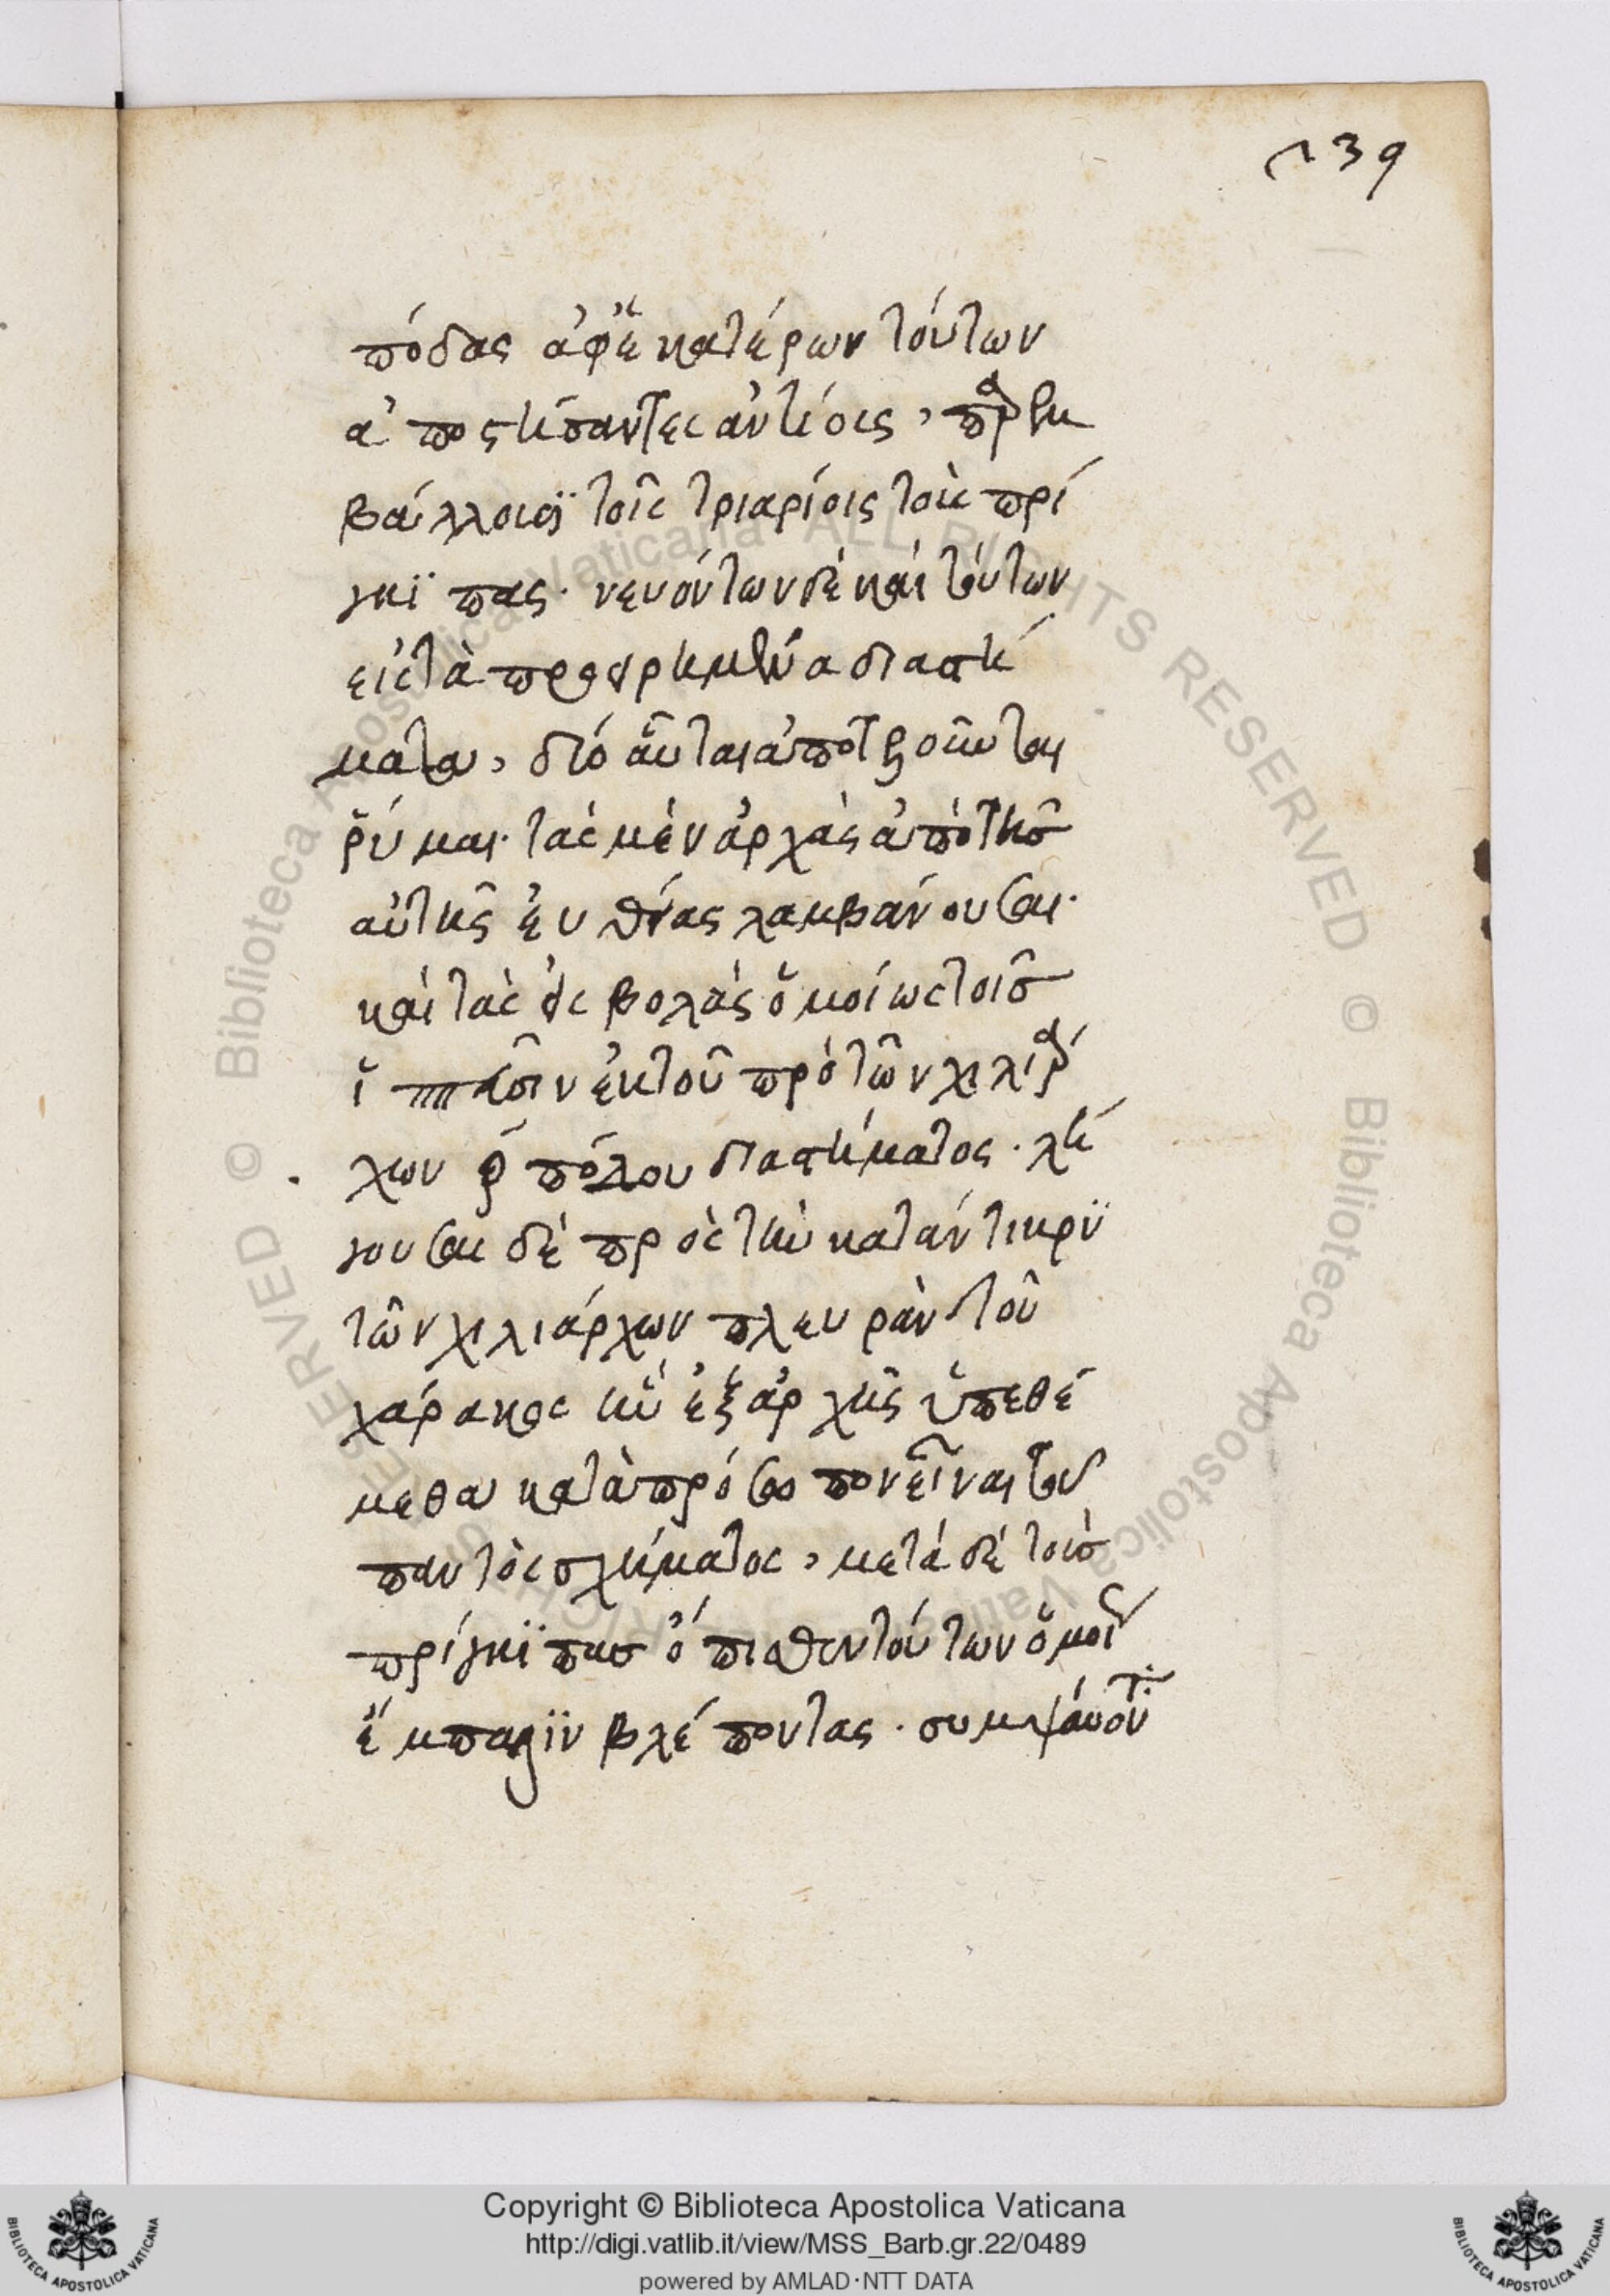 139
πόδας ἀφ' ἑκατέρων τούτων
ἀποστήσαντες ἀντίοις, παρεμ
βάλλουσϊ τοῖς τριαρίοις τοὺς πρί
γκϊπας. νευόντων δὲ καὶ τούτων
εἰς τὰ προειρημένα διαστή
ματα, δύο αὗται ἀποτελοῦνται
ῥύμαι. τὰς μὲν ἀρχὰς ἀπὸ τῆσ
αὐτῆς εὐθείας λαμβάνουσαι.
καὶ τὰς εἰσβολὰς ὁμοίως τοῖσ
ἱππεῦσιν ἐκ τοῦ πρὸ τῶν χιλιάρ
χων ρ πόδου διαστήματος. λή
γουσαι δὲ πρὸς τὴν καταντικρϋ
τῶν χιλιάρχων πλευρὰν τοῦ
χάρακος ἣν ἐξ ἀρχῆς ὑπεθέ
μεθα κατὰ πρόσωπον εἶναι τοῦ
παντὸς σχήματος, μετὰ δὲ τοὺσ
πρίγκϊπασ ὄπισθεν τούτων ὁμοί
ἔμπαλϊν βλέποντας. συμψαύοντ
Copyright © Biblioteca Apostolica Vaticana
http://digi.vatlib.it/view/MSS_Barb.gr.22/0489
powered by AMLAD·NTT DATA